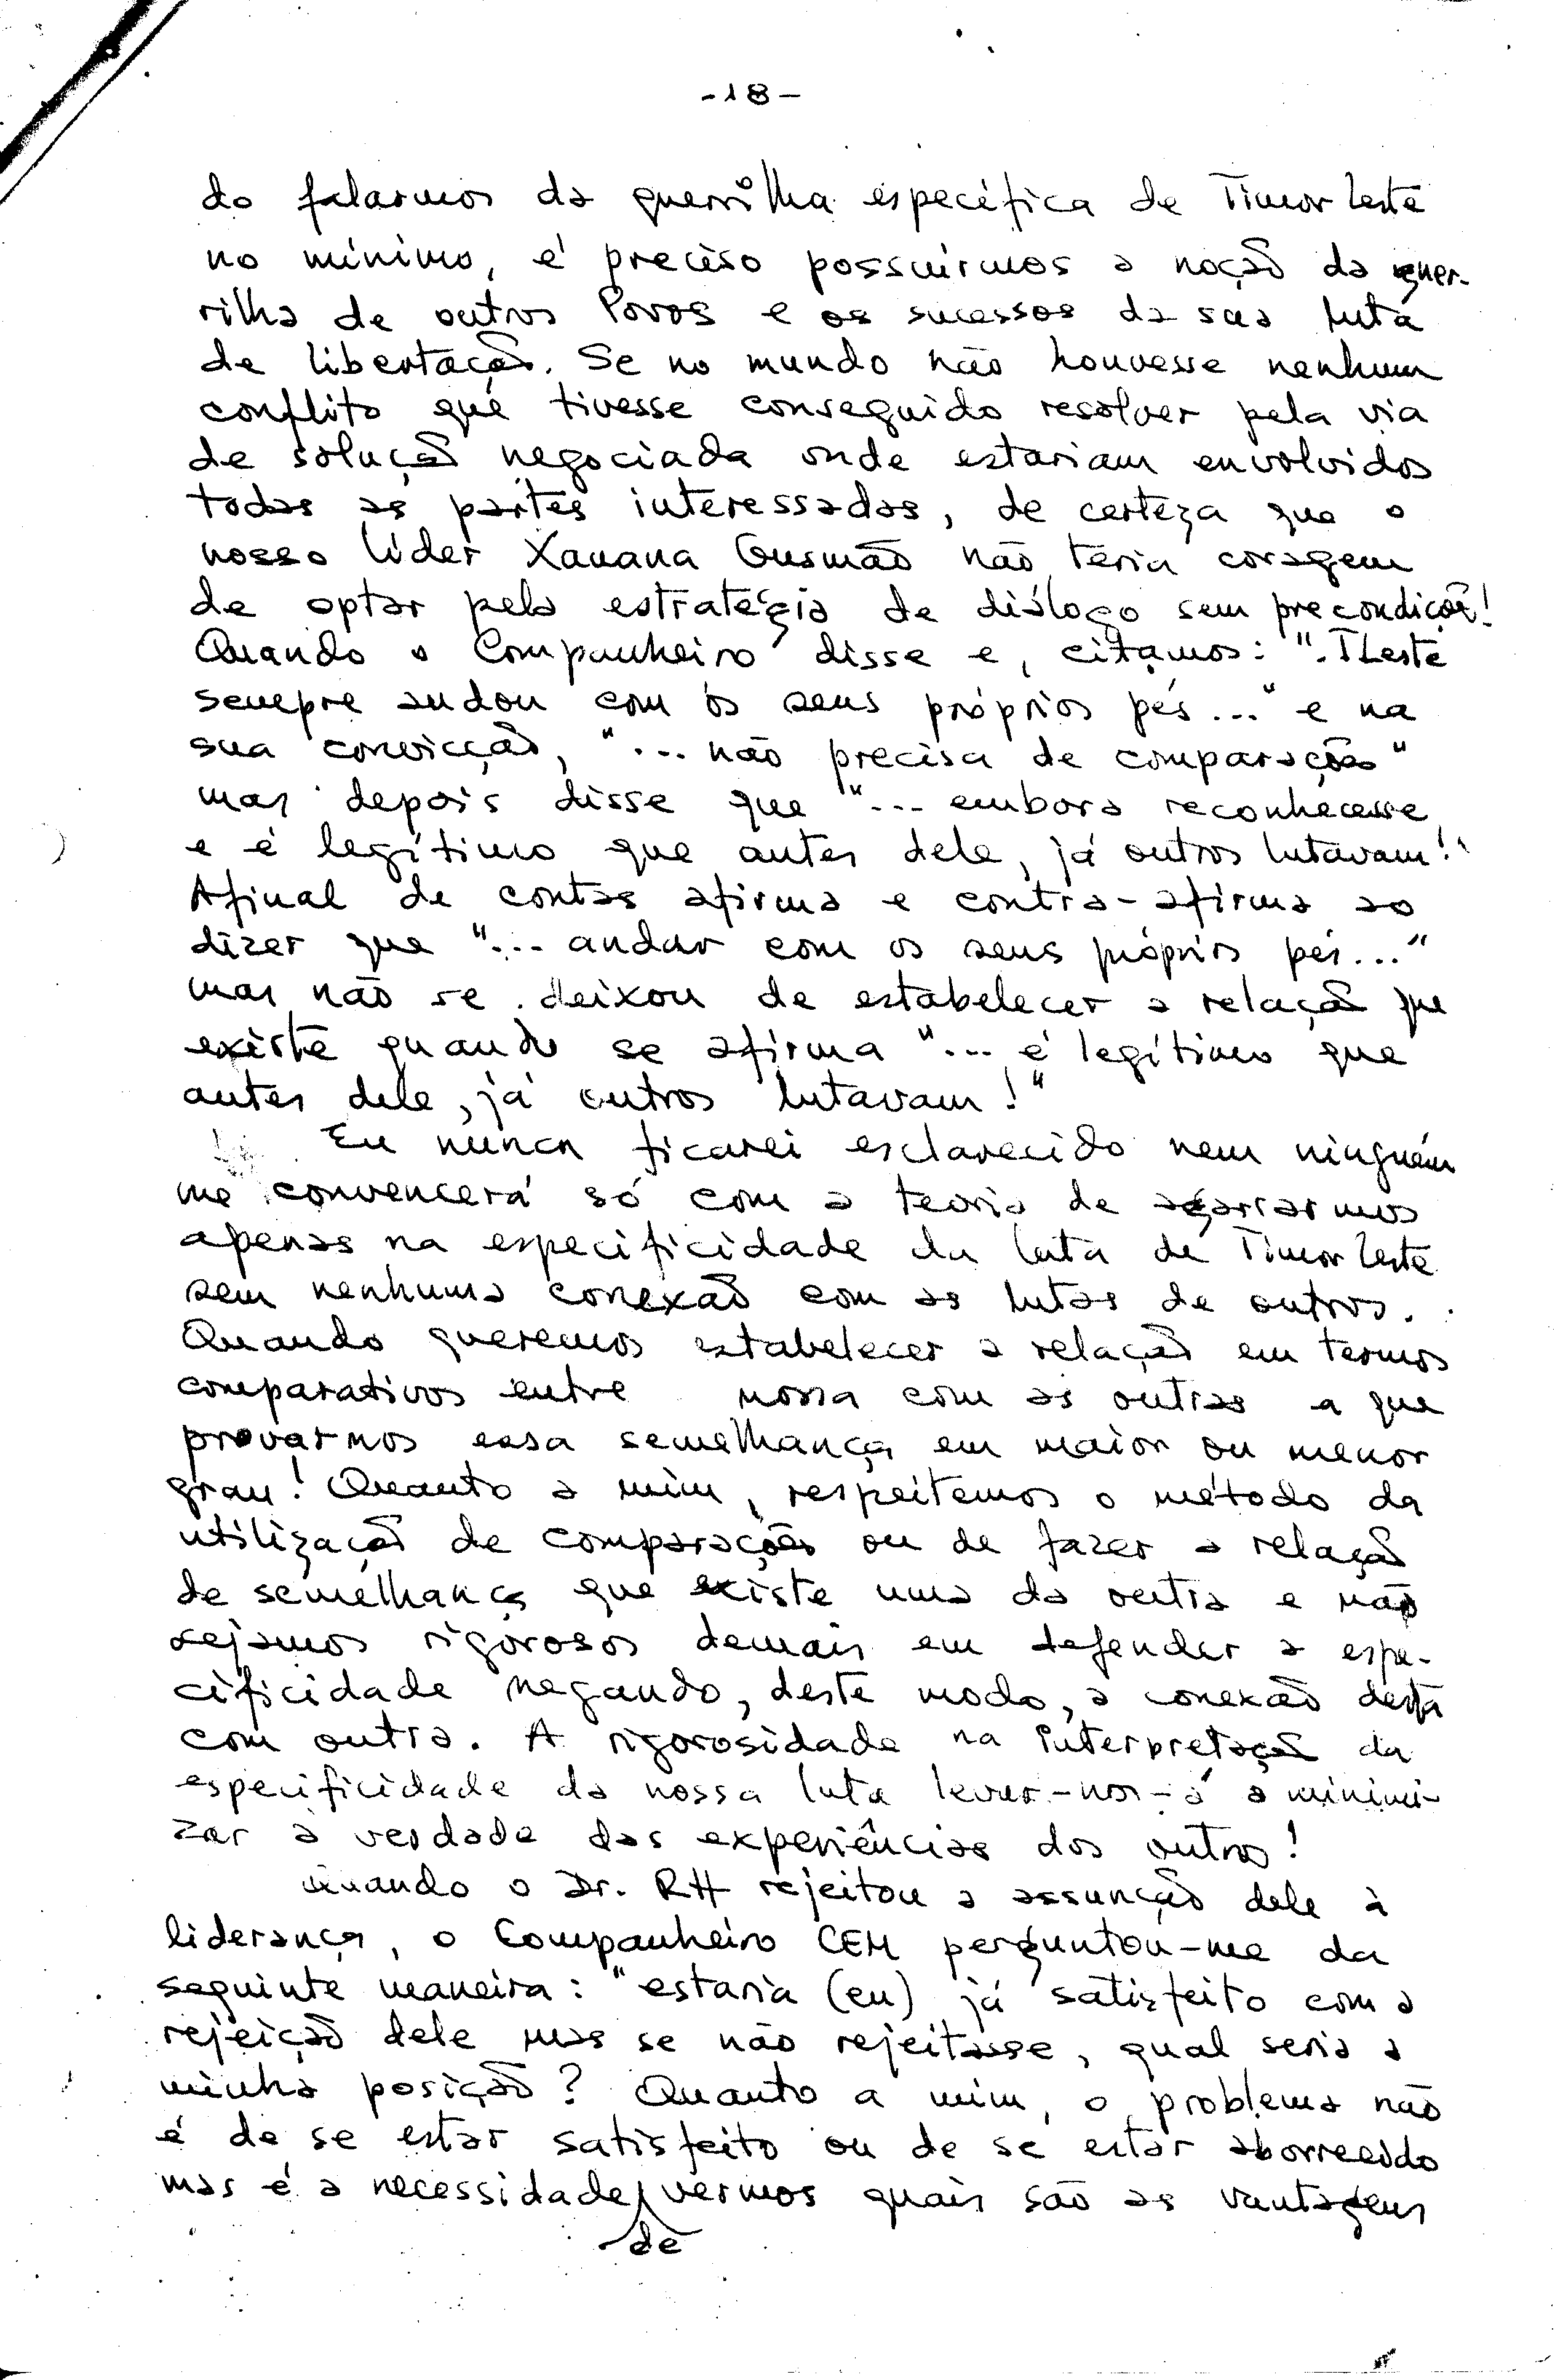 -18-
do falarmos da guerrilha específica de Timor Leste
no mínimo, é preciso possuirmos a noção da guer-
rilha de outros Povos e os sucessos da sua luta
de libertação. Se no mundo não houvesse nenhum
conflito que tivesse conseguido resolver pela via
de solução negociada onde estariam envolvidos
todas as partes interessadas, de certeza que o
nosso líder Xanana Gusmão não teria coragem
de optar pela estratégia de diálogo sem precondição!
Quando o Companheiro disse e, citamos: ". TLeste
sempre andou com os seus próprios pés..." e na
sua convicção, "... não precisa de comparações"
mas depois disse que "... embora reconhecesse
e é legítimo que antes dele, já outros lutavam!"
Afinal de contas afirma e contra-afirma ao
dizer que "... andar com os seus próprios pés..."
mas não se deixou de estabelecer a relação que
existe quando se afirma "... é legítimo que
antes dele, já outros lutavam!"
Eu nunca ficarei esclarecido nem ninguém
me convencerá só com a teoria de agarrarmos
apenas na especificidade da luta de Timor Leste
sem nenhuma conexão com as lutas de outros.
Quando queremos estabelecer a relação em termos
comparativos entre nossa com as outras a que
provarmos essa semelhança em maior ou menor
grau! Quanto a mim, respeitemos o método da
utilização de comparações ou de fazer a relação
de semelhança que existe uma da outra e não
sejamos rigorosos demais em defender a espe-
cificidade negando, deste modo, a conexão desta
com outra. A rigorosidade na interpretação da
especificidade da nossa luta levar-nos-á a minimi-
zar a verdade das experiências dos outros!
Quando o Dr. RH rejeitou a assunção dele à
liderança, o Companheiro CEM perguntou-me da
seguinte maneira: "estaria (eu) já satisfeito com a
rejeição dele mas se não rejeitasse, qual seria a
minha posição? Quanto a mim, o problema não
é de se estar satisfeito ou de se estar aborrecido
mas é a necessidade de vermos quais são as vantagens